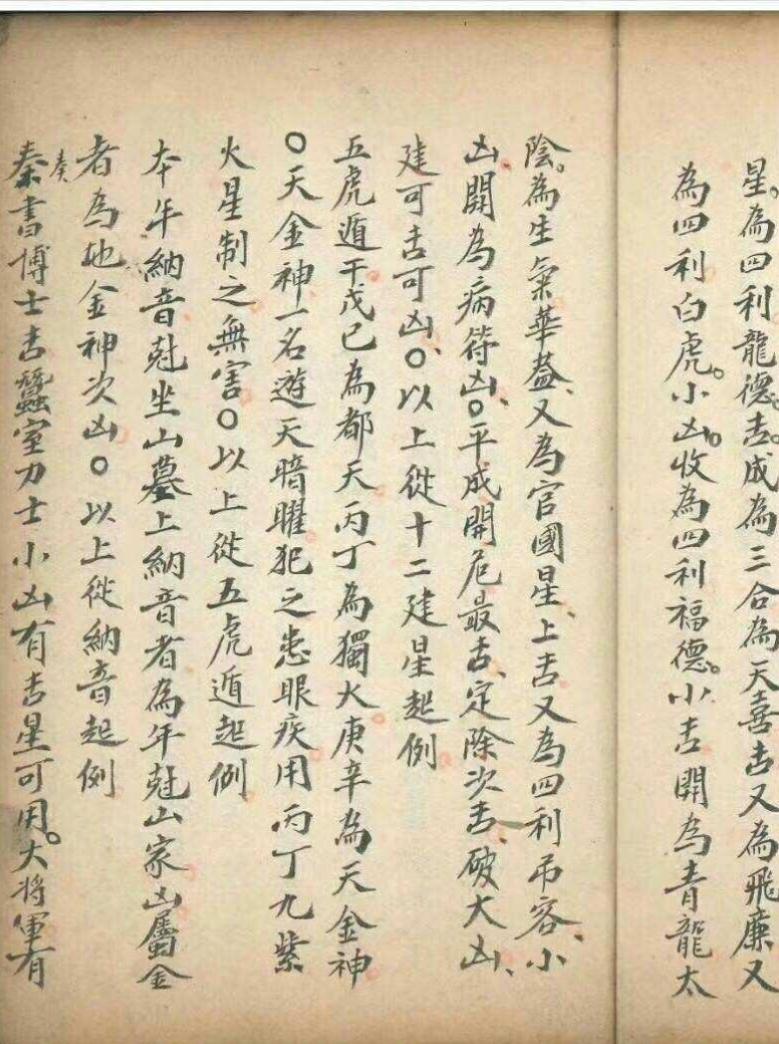 星。為四利龍德。吉。成為三合為天喜吉又為飛廉又
為四利白虎。小凶。收為四利福德。小吉開為青龍太
陰。為生氣華盖、又為官國星、上吉又為四利吊客、小
凶、閉為病符凶、○平成開危最吉、定除次吉、破大凶、
建可吉可凶、○以上從十二建星起例
五虎遁干戊己為都天丙丁為獨火庚辛為天金神
○天金神一名遊天暗曜犯之患眼疾用丙丁九紫
火星制之無害○以上從五虎遁起例
本年納音尅坐山墓上納音者為年尅山家凶屬金
者為地金神次凶○以上從納音起例
秦書博士吉蠶室力士小凶有吉星可用。大将軍有
奏